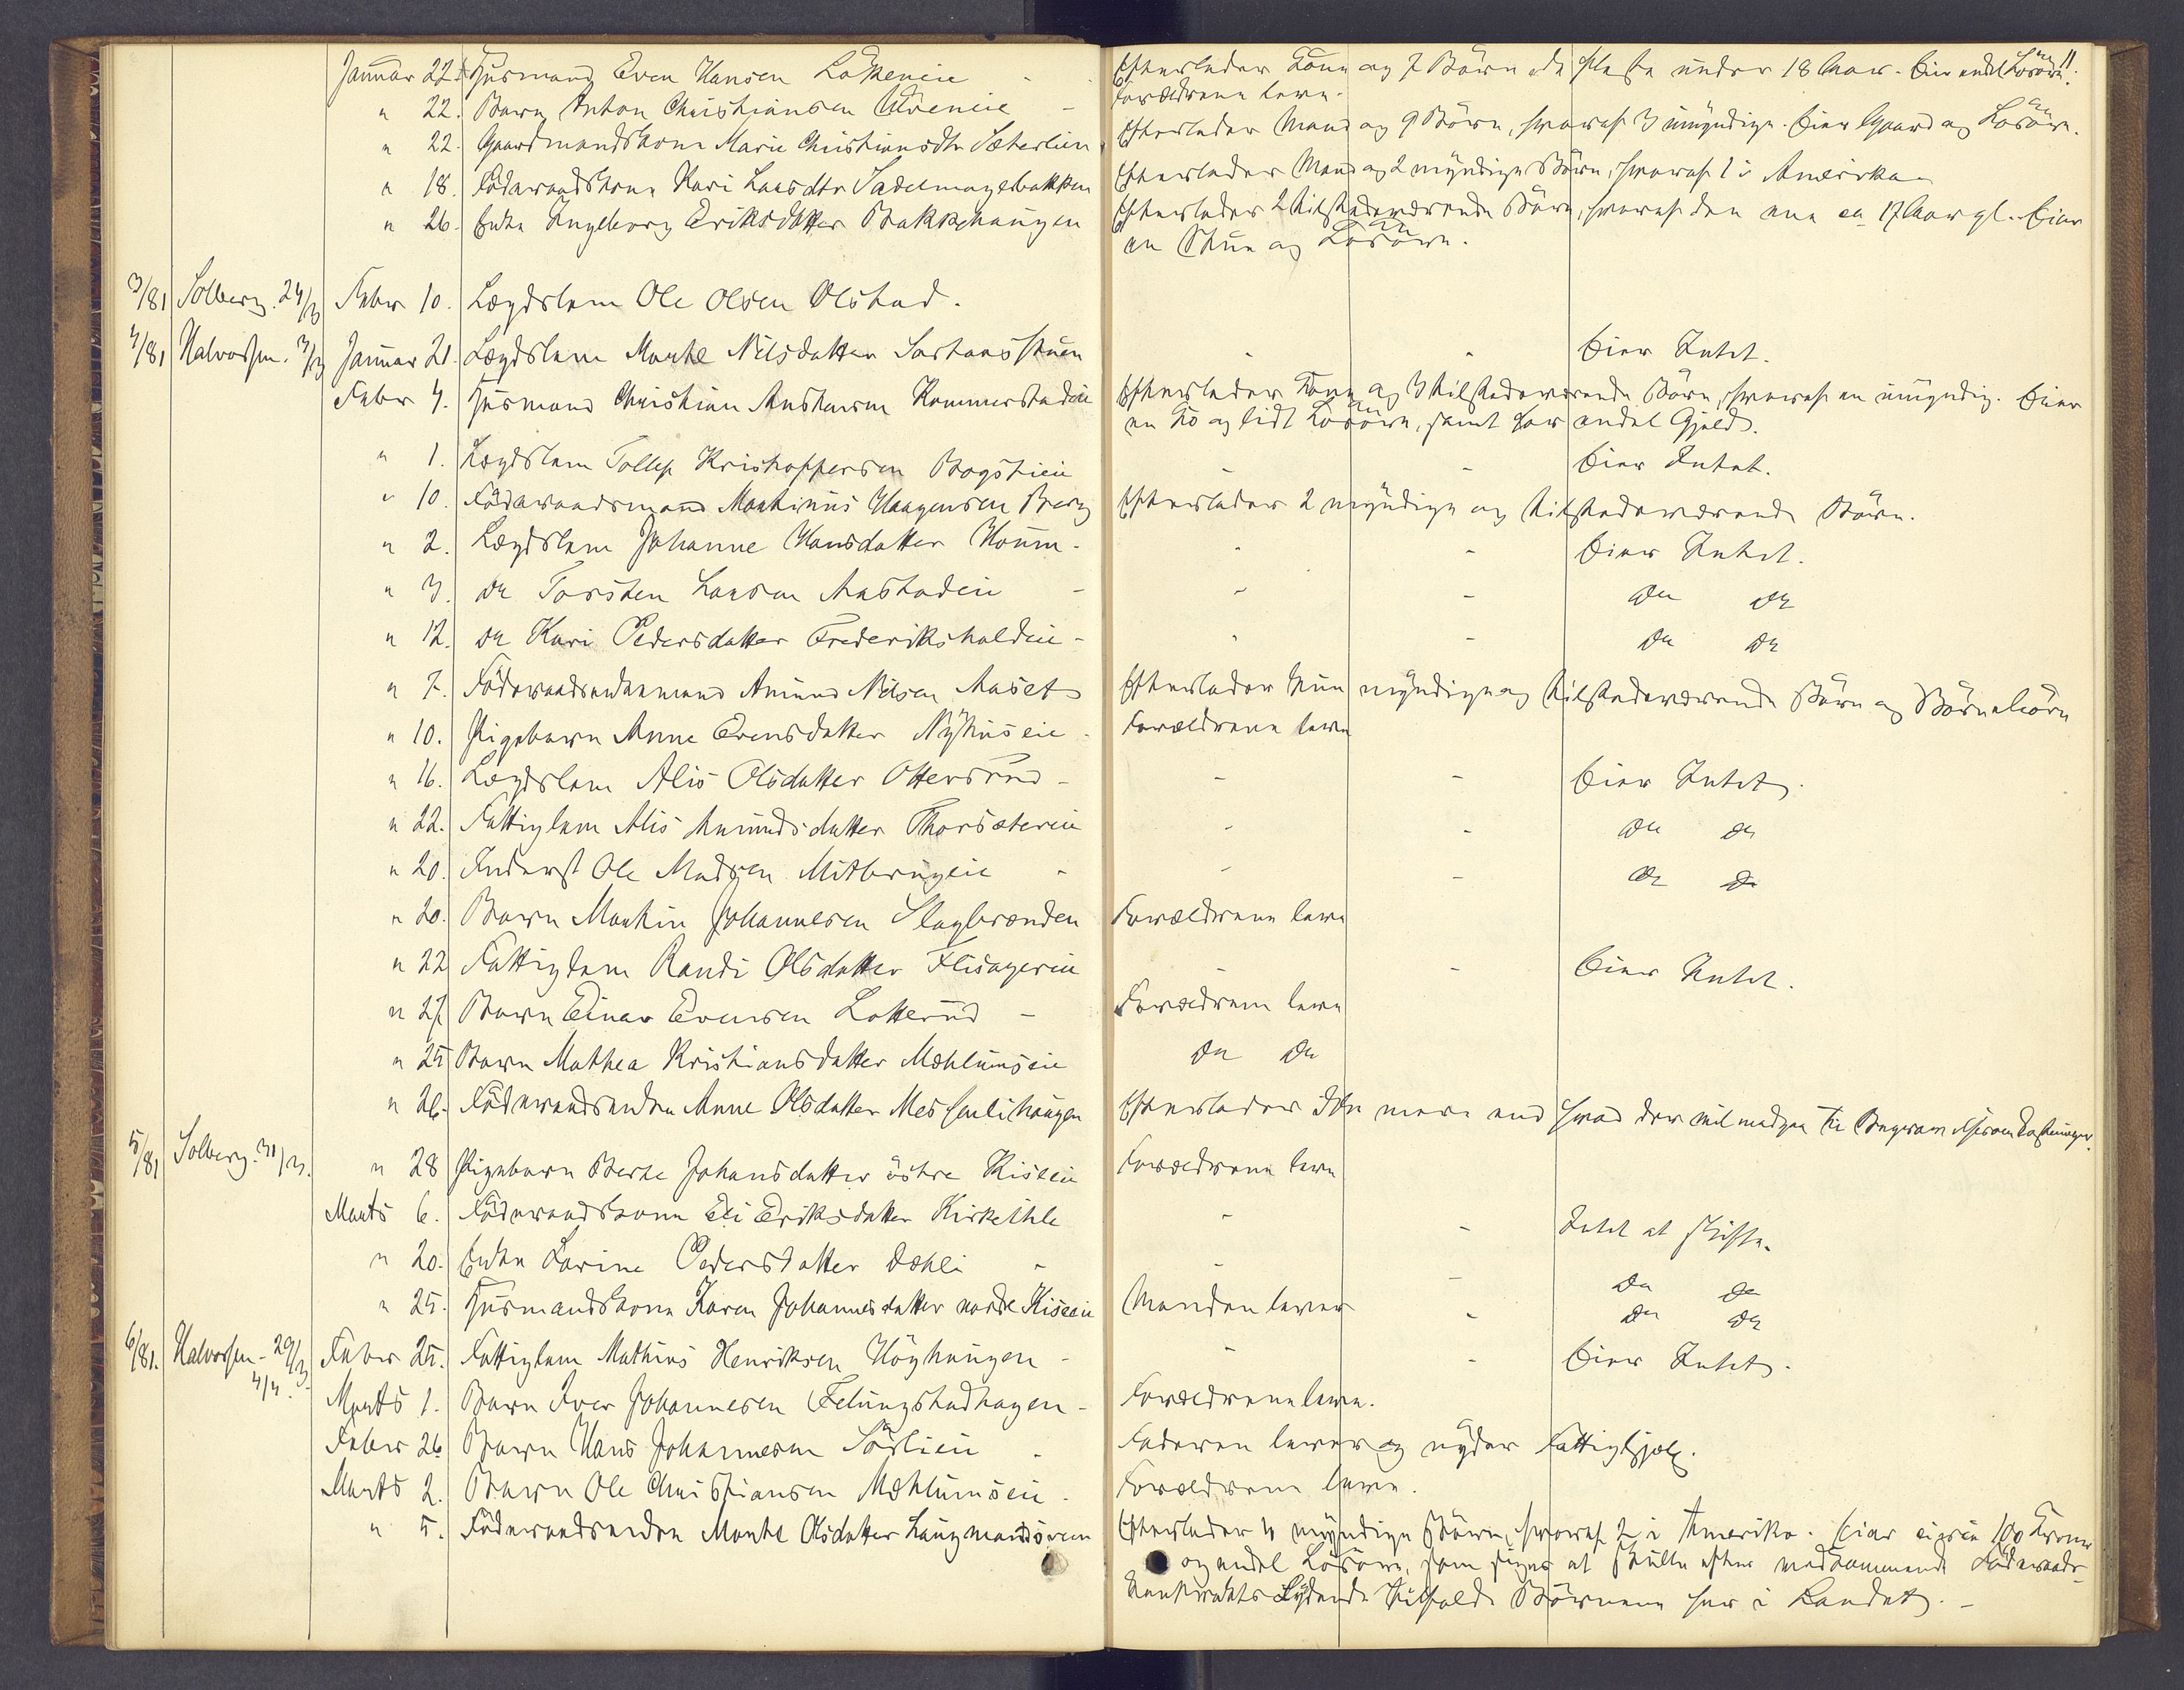 Januar 22. Husmand Even Hansen Løkeneie - - Efterlader Kone og 7 Børn de fleste under 18 Aar. Eier endel Løsøre.
" 22. Barn Anton Christiansen - Forældrene lever.
" 22. Gaardmandskone Marie Christiansdtr Sæterlien Efterlader Mand og 9 Børn, hvoraf 3 umyndige. Eier Gaard og Løsøre.
" 18. Føderaadskone Kari Larsdtr Sadelmagerbakken Efterlader Mand og 2 myndige Børn, hvoraf 1 i Amerika
" 26. Enke Ingeborg Eriksdatter Bakkehaugen Efterlader 2 tilstedeværende Børn, hvoraf den ene ca 17 Aar gl. Eier
en Stue og Løsøre.
3/81 Solberg. 24/3 Febr 10. Lægdslem Ole Olsen Olstad.
4/81 Halvorsen. 3/3 Januar 21. Lægdslem Marthe Nilsdatter - - Eier Intet.
Febr 4. Husmand Christian Andersen Kummerstadeie Efterlader Kone og 3 tilstedeværende Børn, hvoraf en umyndig. Eier
en Ko og lidt Løsøre, samt har endel Gjeld.
" 1. Lægdslem Tollef Kristoffersen Bogstieie - - Eier Intet.
" 10. Føderaadsmand Martinus Haagensen Berg Efterlader 2 myndige og tilstedeværende Børn.
" 2. Lægdslem Johanne Hansdatter Houm - - - Eier Intet.
" 3. do Torsten Larsen Aastadeie - - - do do
" 12. do Kari Pedersdatter Frederikshaldeie - - - do do
" 7. Føderaadsenkemand Amund Nilsen Aaset Efterlader kun myndige og tilstedeværende Børn og Børnebørn
" 10. Pigebarn Anne Evensdatter Nyhuseie - Forældrene lever
" 16. Lægdslem Alis Olsdatter Ottersrud - - - Eier Intet.
" 22. Fattiglem Alis Amundsdatter Thorsætereie - - do do
" 20. Inderst Ole Madsen Mitbrugeie - - - do do
" 20. Barn Martin Johannesen Slagbrænden Forældrene lever
" 22 Fattiglem Randi Olsdatter Flisagereie - - Eier Intet.
" 27. Barn Einar Evensen Lotterud - Forældrene lever
" 25 Barn Mathea Kristiansdatter Mæhlumseie do do
" 26. Føderaadsenke Anne Olsdatter Messenlihaugen Efterlader Ikke mere end hvad der vil medgaa til Begravelsesomkostninger.
5/81 Solberg. 31/3. " 28 Pigebarn Berte Johansdatter østre Kiseeie Forældrene lever
Marts 6. Føderaadskone Eli Eriksdatter Kirkethle - - Intet at skifte.
" 20. Enke Karine Pedersdatter Dæhli - - - do do
" 25. Husmandskone Karen Johannesdatter nordre Kiseeie Manden lever - do do
6/81. Halvorsen - 29/3 Febr 25. Fattiglem Mathias Henriksen Höyhaugen - - - Eier Intet.
4/4. Marts 1. Barn Iver Johannesen Felungstadhagen - Forældrene lever.
Febr 26 Barn Hans Johannesen Sørlieie - Faderen lever og nyder Fattighjælp.
Marts 2. Barn Ole Christiansen Mæhlumseie - Forældrene lever.
" 5. Føderaadsenke Marthe Olsdatter Efterlader 4 myndige Børn, hvoraf 2 i Amerika. Eier circa 100 Kroner
og endel Løsøre, som siges at skulle efter vedkommende Føderaads-
kontrakts Lydende tilfalde Børnene her i Landet. -